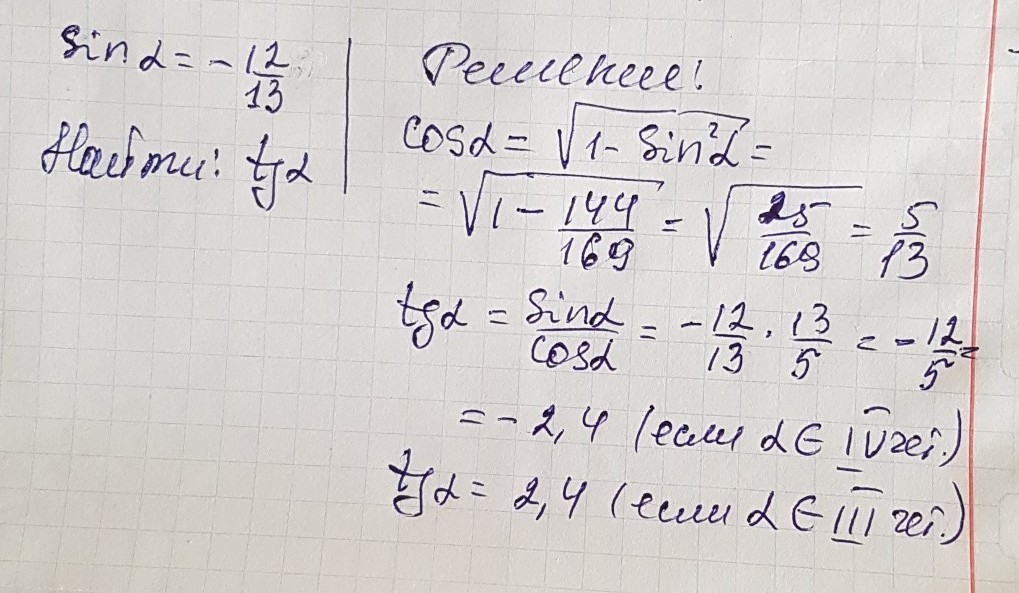 sin α = - 12/13
Найти: tg α
Решение:
cos α = √(1 - sin²α) =
= √(1 - 144/169) = √(25/169) = 5/13
tg α = sin α/cos α = - 12/13 · 13/5 = - 12/5 =
= - 2,4 (если α ∈ IV чет.)
tg α = 2,4 (если α ∈ III чет.)